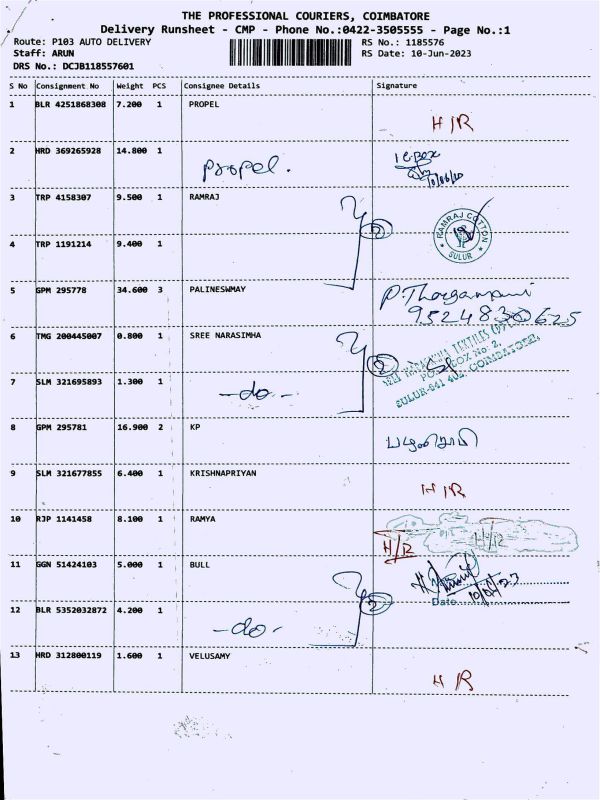 THE PROFESSIONAL COURIERS, COIMBATORE
Delivery Runsheet - CMP - Phone No.:0422-3505555 - Page No.:1
Route: P103 AUTO DELIVERY RS No.: 1185576
Staff: ARUN RS Date: 10-Jun-2023
DRS No.: DCJB118557601
S No Consignment No Weight PCS Consignee Details Signature
1 BLR 4251868308 7.200 1 PROPEL
H/R
2 HRD 369265928 14.800 1
Propel.
10/06/20
3 TRP 4158307 9.500 1 RAMRAJ
2
RAMRAJ COTTON
SULUR
4 TRP 1191214 9.400 1
5 GPM 295778 34.600 3 PALINESWMAY
P.Thangamani
9524830625
6 TMG 200445007 0.800 1 SREE NARASIMHA
2
SREE NARASIMHA TEXTILES (P)
POST BOX No. 2,
SULUR-641 402. COIMBATORE.
7 SLM 321695893 1.300 1
-do-
8 GPM 295781 16.900 2 KP
9 SLM 321677855 6.400 1 KRISHNAPRIYAN
H/R
10 RJP 1141458 8.100 1 RAMYA
H/R
11 GGN 51424103 5.000 1 BULL
2
Date
12 BLR 5352032872 4.200 1
-do-
13 HRD 312800119 1.600 1 VELUSAMY
H R